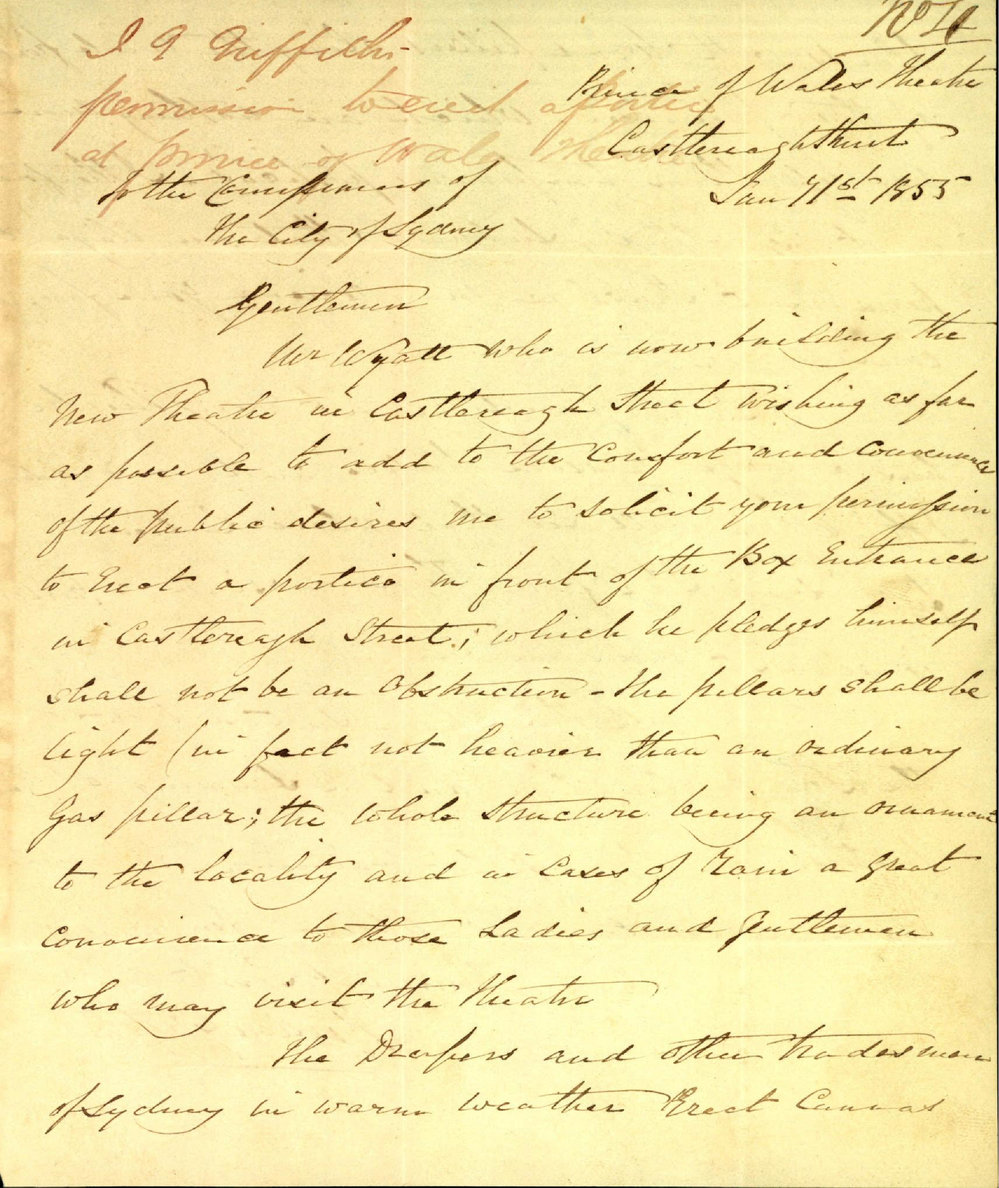 J G Griffiths
permission to erect a portico
at prince of Wales theatre
Prince of Wales Theatre
Castlereagh Street
Jan 31st 1855
To the Commissioners of
The City of Sydney
Gentlemen
Mr Wyatt who is now building the
New Theatre in Castlereagh Street wishing as far
as possible to add to the Comfort and convenience
of the public desires me to solicit your permission
to Erect a portico in front of the Box Entrance
in Castlereagh Street; which he pledges himself
shall not be an Obstruction - the pillars shall be
light (in fact not heavier than an ordinary
Gas pillar; the whole structure being an ornament
to the locality and in cases of Rain a great
convenience to those Ladies and Gentlemen
who may visit the theatre
The Drapers and other tradesmen
of Sydney in warm weather Erect Canvas